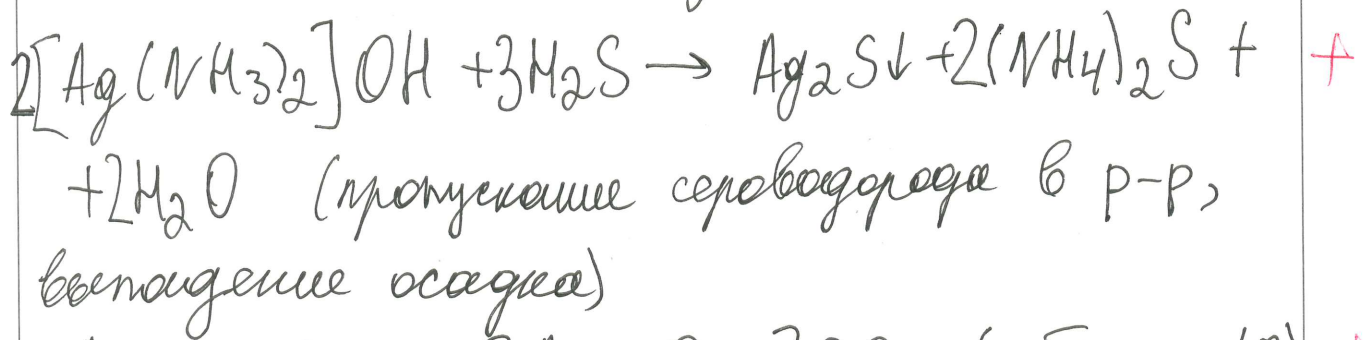 2[Ag(NH3)2]OH + 3H2S → Ag2S↓ + 2(NH4)2S + +
+ 2H2O (пропускание сероводорода в р-р,
выпадение осадка)